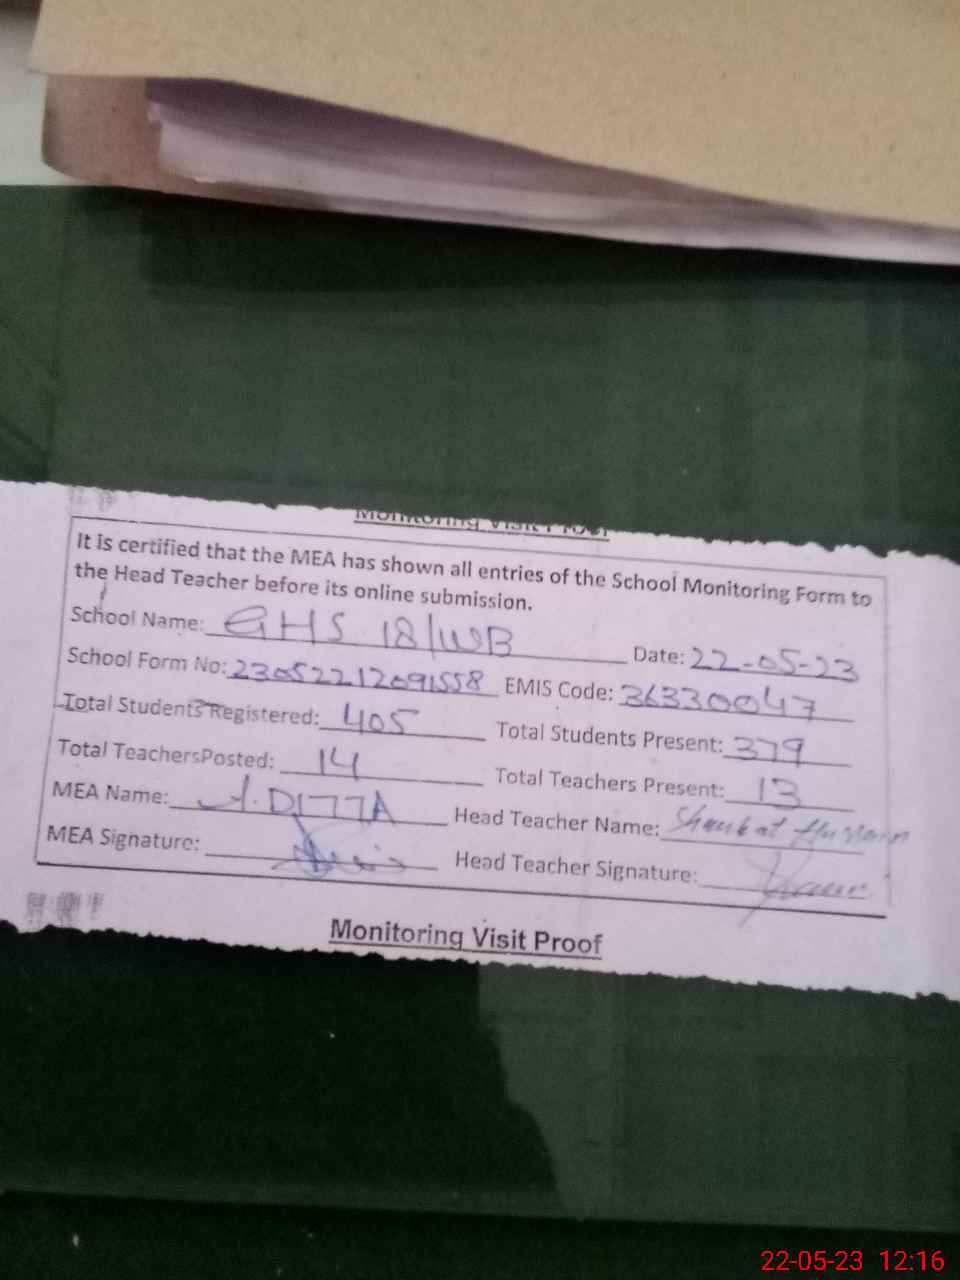 Monitoring Visit Proof
It is certified that the MEA has shown all entries of the School Monitoring Form to
the Head Teacher before its online submission.
School Name: GHS 18/WB Date: 22-05-23
School Form No: 23052212091558 EMIS Code: 36330047
Total Students Registered: 405 Total Students Present: 379
Total TeachersPosted: 14 Total Teachers Present: 13
MEA Name: A.DITTA Head Teacher Name: Shaukat Hussain
MEA Signature: Head Teacher Signature:
Monitoring Visit Proof
22-05-23 12:16